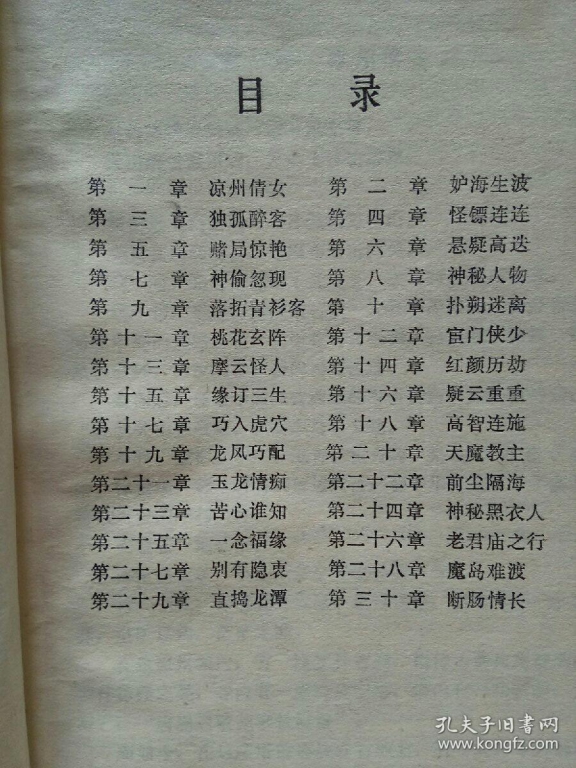 目 录
第一章 凉州倩女 第二章 妒海生波
第三章 独孤醉客 第四章 怪镖连连
第五章 赌局惊艳 第六章 悬疑高迭
第七章 神偷忽现 第八章 神秘人物
第九章 落拓青衫客 第十章 扑朔迷离
第十一章 桃花玄阵 第十二章 宦门侠少
第十三章 摩云怪人 第十四章 红颜历劫
第十五章 缘订三生 第十六章 疑云重重
第十七章 巧入虎穴 第十八章 高智连施
第十九章 龙风巧配 第二十章 天魔教主
第二十一章 玉龙情痴 第二十二章 前尘隔海
第二十三章 苦心谁知 第二十四章 神秘黑衣人
第二十五章 一念福缘 第二十六章 老君庙之行
第二十七章 别有隐衷 第二十八章 魔岛难渡
第二十九章 直捣龙潭 第三十章 断肠情长
孔夫子旧书网
www.kongfz.com